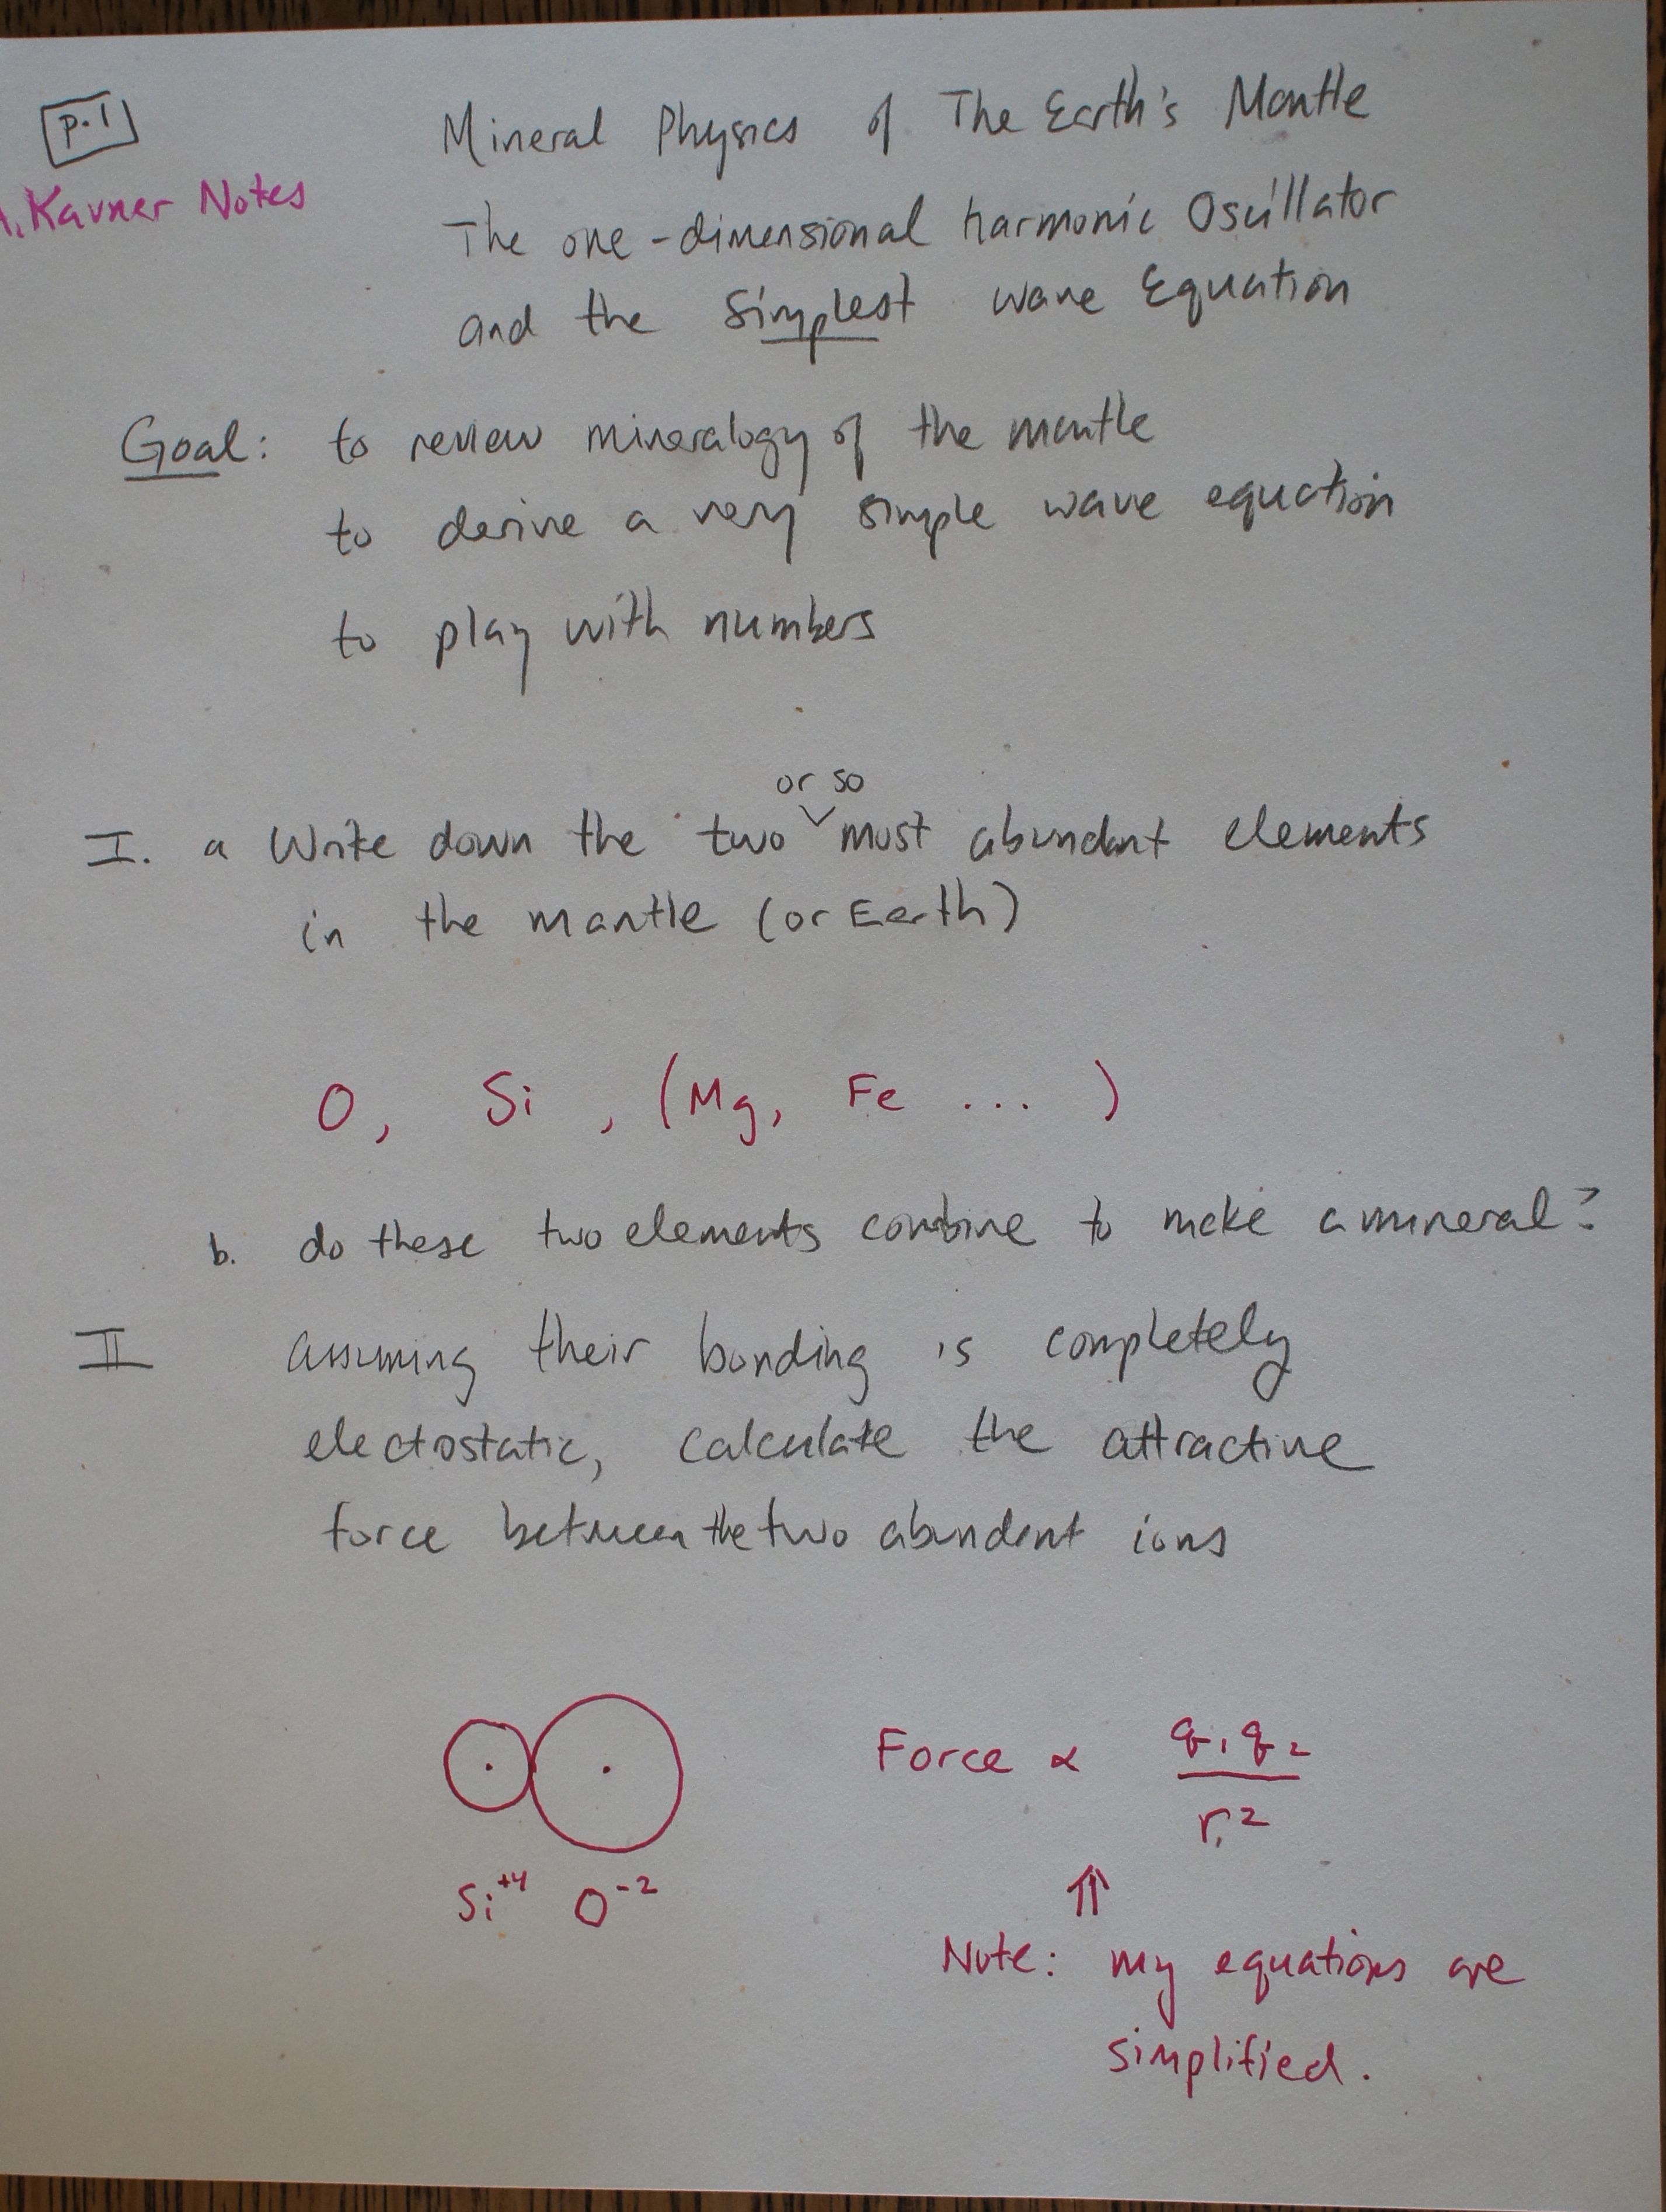 p.1
A. Kavner Notes
Mineral Physics of The Earth's Mantle
The one-dimensional harmonic Oscillator
and the Simplest wave Equation
Goal: to review mineralogy of the mantle
to derive a very simple wave equation
to play with numbers
or so
I. a Write down the two most abundant elements
in the mantle (or Earth)
O, Si, (Mg, Fe ... )
b. do these two elements combine to make a mineral?
II assuming their bonding is completely
electrostatic, calculate the attractive
force between the two abundent ions
Force ∝ q₁q₂
r²
Si⁺⁴ O⁻²
⇑
Note: my equations are
simplified.